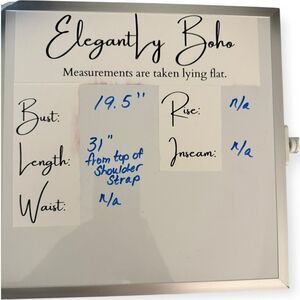 Elegantly Boho
Measurements are taken lying flat.
Bust: 19.5"
Rise: n/a
Length: 31"
from top of
Shoulder
Strap
Inseam: n/a
Waist: n/a